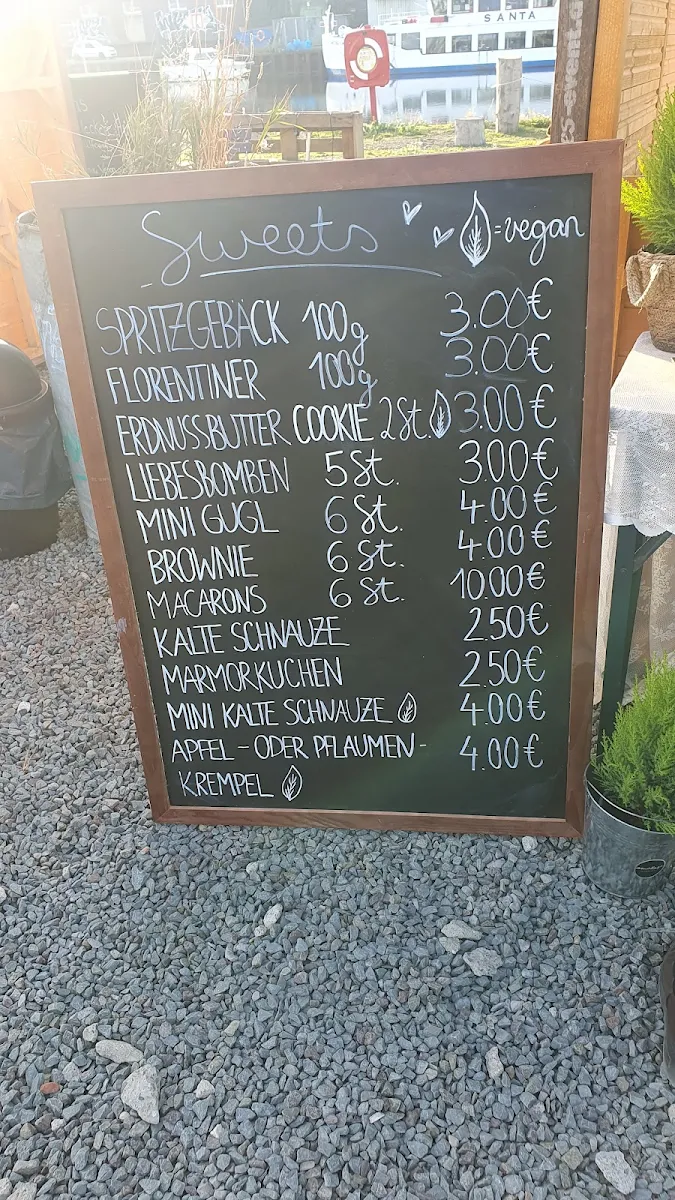 SANTA
Sweets =vegan
SPRITZGEBÄCK 100g 3.00€
FLORENTINER 100g 3.00€
ERDNUSSBUTTER COOKIE 2St. 3.00€
LIEBESBOMBEN 5St. 3.00€
MINI GUGL 6 St. 4.00€
BROWNIE 6 St. 4.00€
MACARONS 6 St. 10.00€
KALTE SCHNAUZE 2.50€
MARMORKUCHEN 2.50€
MINI KALTE SCHNAUZE 4.00€
APFEL - ODER PFLAUMEN- 4.00€
KREMPEL